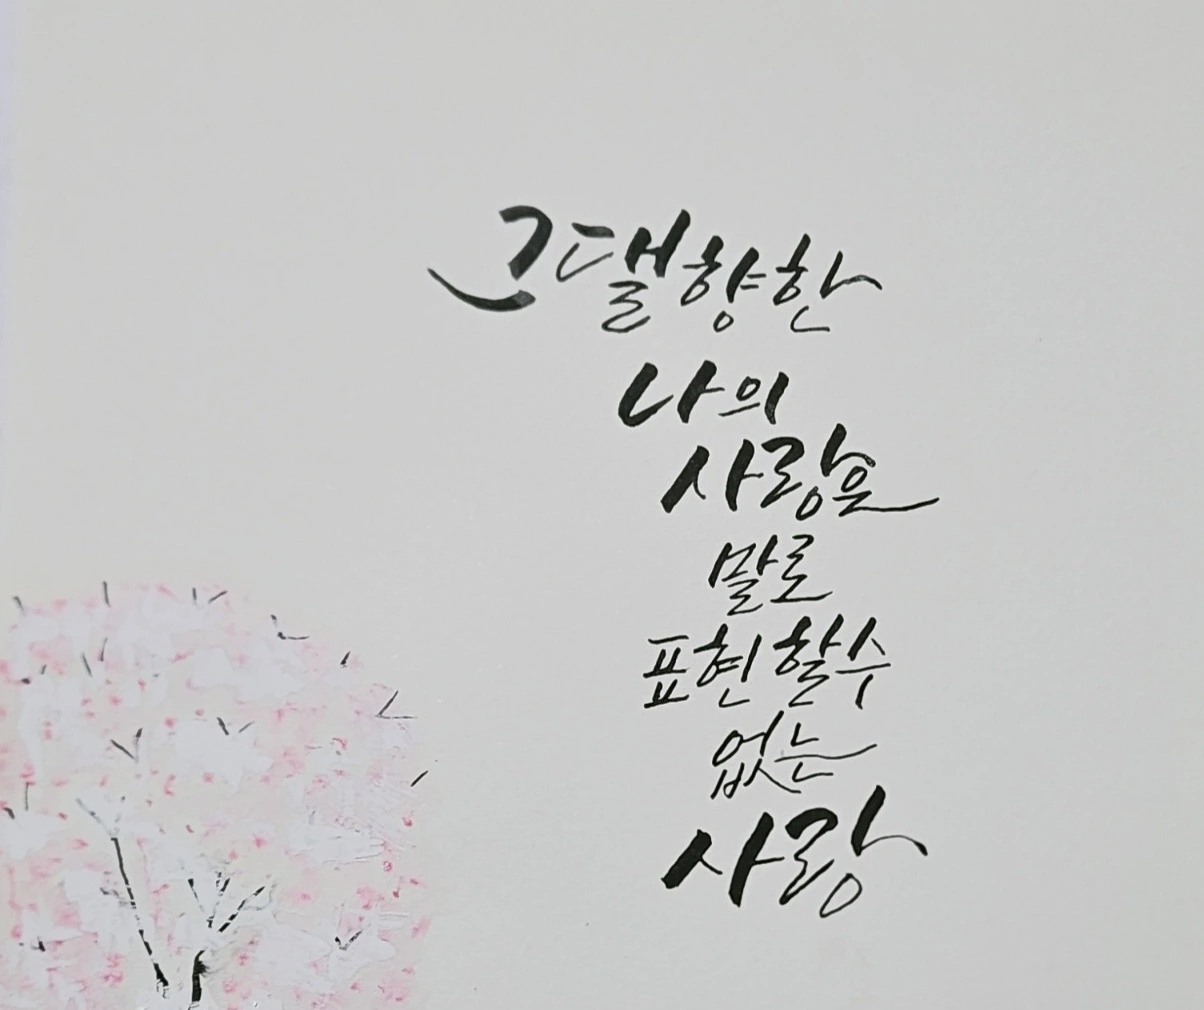 그댈향한
나의
사랑은
말로
표현할수
없는
사랑